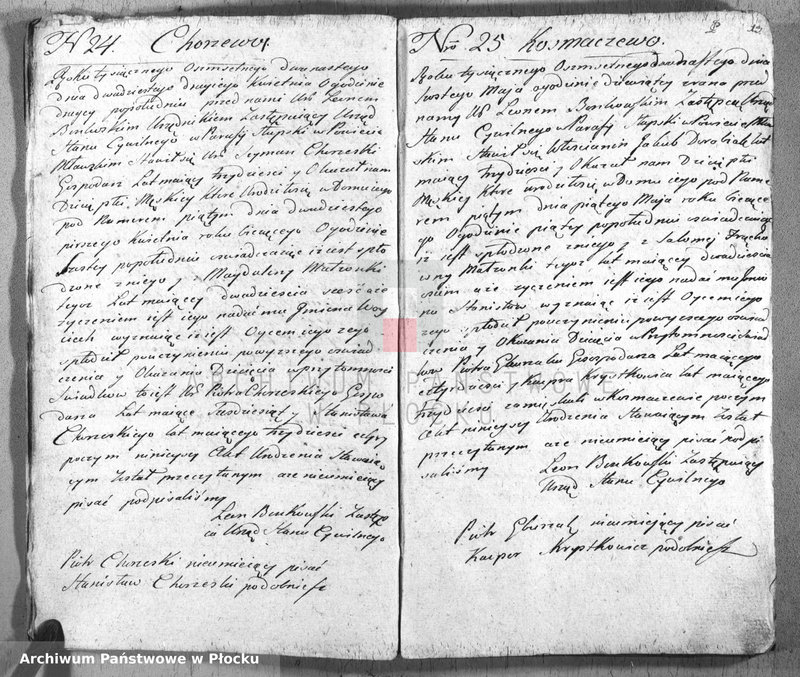 N 24. Chorzewo.
Roku tysiącznego Osmsetnego dwunastego
dnia dwudziestego drugiego Kwietnia O godzinie
drugiey popołudniu przed nami Leonem
Urzędnikiem Zastępuiący Urząd
Stanu Cywilnego w Parafy Słupski w Powiecie
Mławskim Stawił się Szyman Chorzeski
Gospodarz Lat maiący trzydzieści y Okazał nam
Dziecię płci Męskiey ktore Urodziło się w Domu iego
pod Numerem piątym dnia dwudziestego
pirszego Kwietnia roku bieżącego O godzinie
popołudniu oswiadczaiąc iż iest spło
dzone z niego y Magdaleny Małżonki
iego Lat maiącey dwadziescia szesć a że
życzeniem iest iego nadać mu Imiona Woy
ciech wyznaiąc iż iest Oycem iego z ego
spłodził po uczynieniu powyszego oswiad
czenia y Okazaniu Dziecięcia w przytomności
Swiadkow to iest Piotra Chorzeskiego Gospo
darza Lat maiące y Stanisława
Chorzeskiego lat maiącego trzydziesci cztyry
poczym ninieyszy Akt Urodzenia Stawaią
cym Został przeczytanym a że nieumieiący
pisać podpisaliśmy
Leon Bońkowski Zastęp
ca Urząd Stanu Cywilnego
Piotr Chorzeski nieumieiący pisać
Stanisław Chorzeski podobnież
Nro 25 Kosmaczewo.
Roku tysiącznego Osmsetnego dwunastego dnia
szostego Maja o godzinie dziewiąty z rana przed
namy Leonem Bońkowskim Zastępca Urząd
Stanu Cywilnego w Parafy Słupski w Powiecie Mław
skim Stawił się Włościanin Jakub Lat
maiący trzydzieści y Okazał nam Dziecię płci
Męskiey ktore urodziło się w Domu iego pod Nume
rem piątym dnia piątego Maja roku bieżące
go O godzinie piąty popołudniu oswiadczaiąc
iż iest spłodzone z niego y z Salomei
wny Małżonki iego lat maiącey dwadziescia
osm a że życzeniem iest iego nadać mu Imio
na Stanisław wyznaiąc iż iest Oycem iego
z ego spłodził po uczynieniu powyszego oswiad
czenia y Okazaniu Dziecięcia w Przytomności Swiad
kow Piotra Gospodarza Lat maiącego
Kacpra Krystkowica lat maiącego
trzydziesci w Kosmaczewie poczym
Akt ninieyszy Urodzenia Stawaiącym Został
przeczytanym a że nieumieiący pisać pod pi
saliśmy
Leon Bońkowski Zastępuiący
Urząd Stanu Cywilnego
Piotr nieumieiący pisać
Kacper Krystkowicz podobnież
ARCHIWUM PAŃSTWOWE
W PŁOCKU
Archiwum Państwowe w Płocku